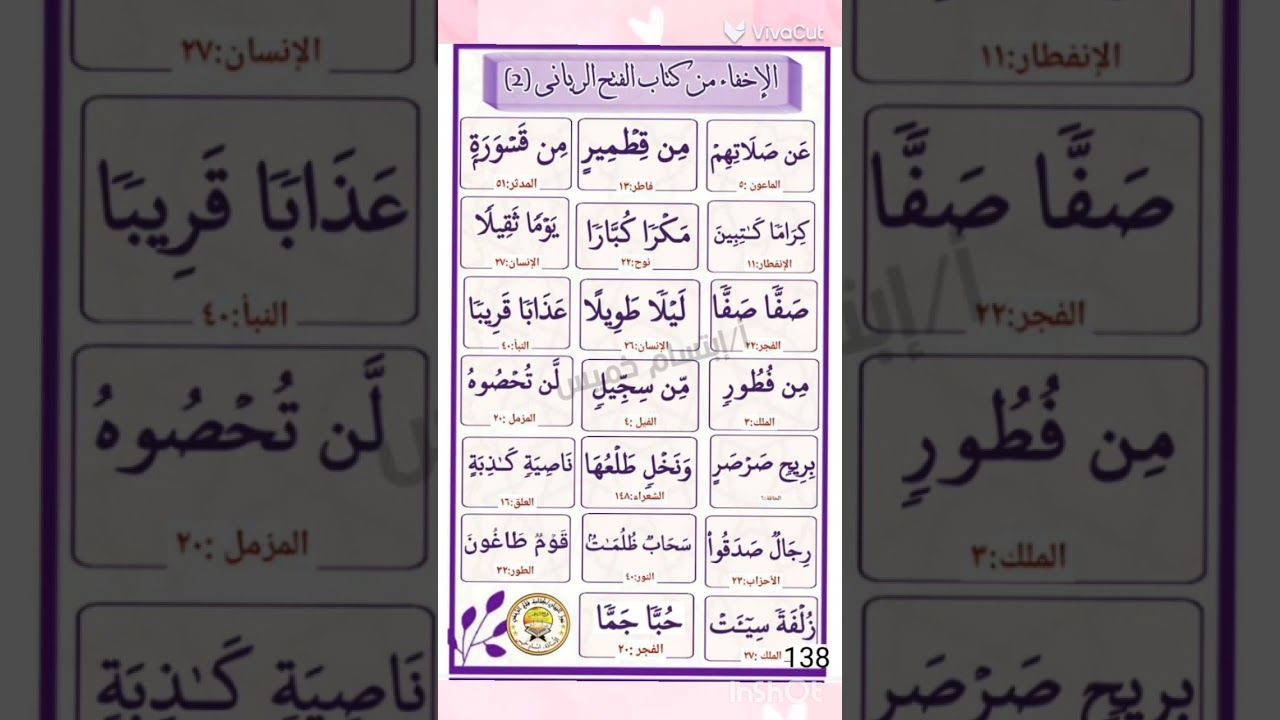 VivaCut
الإخفاء من كتاب الفتح الربانى (2)
عَن صَلَاتِهِمۡ
الماعون :٥
مِن قِطۡمِيرٍ
فاطر:١٣
مِن قَسۡوَرَةِۭ
المدثر:٥١
كِرَامٗا كَٰتِبِينَ
الإنفطار:١١
مَكۡرٗا كُبَّارٗا
نوح:٢٢
يَوۡمٗا ثَقِيلٗا
الإنسان:٢٧
صَفّٗا صَفّٗا
الفجر:٢٢
لَيۡلٗا طَوِيلًا
الإنسان:٢٦
عَذَابٗا قَرِيبٗا
النبأ:٤٠
مِن فُطُورٖ
الملك:٣
مِّن سِجِّيلٖ
الفيل :٤
لَّن تُحۡصُوهُ
المزمل :٢٠
بِرِيحٖ صَرۡصَرٍ
الحاقة:٦
وَنَخۡلٖ طَلۡعُهَا
الشعراء:١٤٨
نَاصِيَةٖ كَٰذِبَةٍ
العلق:١٦
رِجَالٞ صَدَقُواْ
الأحزاب:٢٣
سَحَابٞ ظُلُمَٰتُۢ
النور:٤٠
قَوۡمٞ طَاغُونَ
الطور:٣٢
زُلۡفَةٗ سِيٓـَٔتۡ
الملك :٢٧
حُبّٗا جَمّٗا
الفجر :٢٠
138
أ/إبتسام خميس
InShOt
الإنسان:٢٧
عَذَابٗا قَرِيبٗا
النبأ:٤٠
لَّن تُحۡصُوهُ
المزمل :٢٠
نَاصِيَةٖ كَٰذِبَةٍ
الإنفطار:١١
صَفّٗا صَفّٗا
الفجر:٢٢
مِن فُطُورٖ
الملك:٣
بِرِيحٖ صَرۡصَرٍ